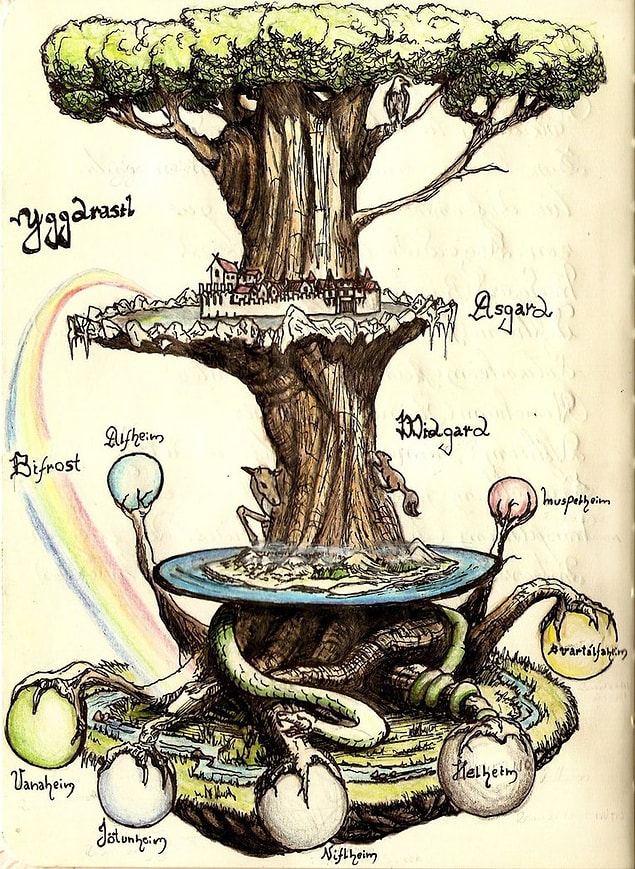 Yggdrasil
Asgard
Midgard
Alfheim
Bifrost
Muspelheim
Svartalfaheim
Vanaheim
Jötunheim
Niflheim
Helheim